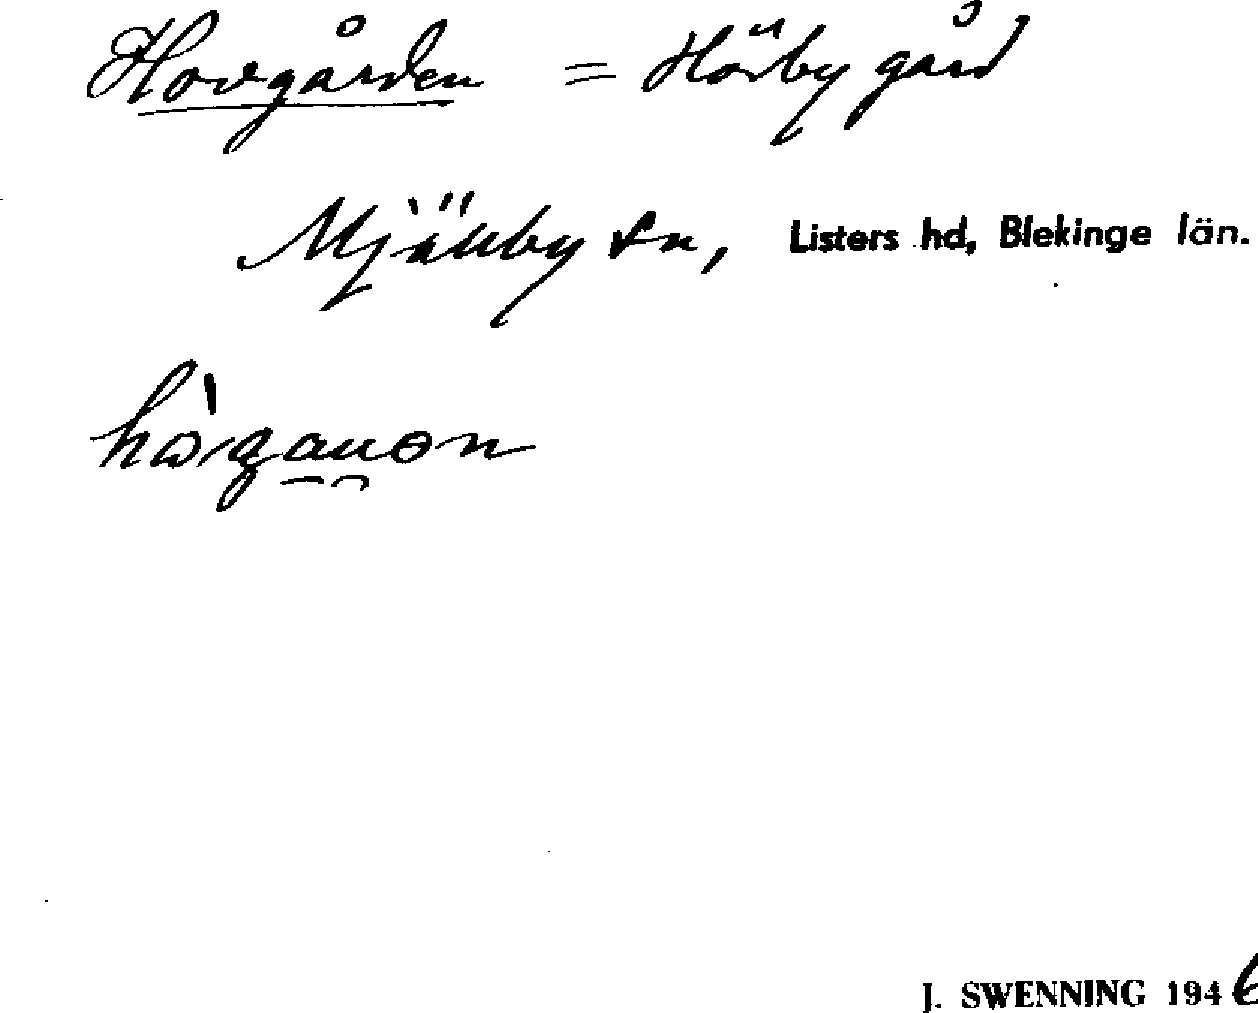 Hovgården = Hörby gård
Mjällby sn, Listers hd, Blekinge län.
J. SWENNING 1946